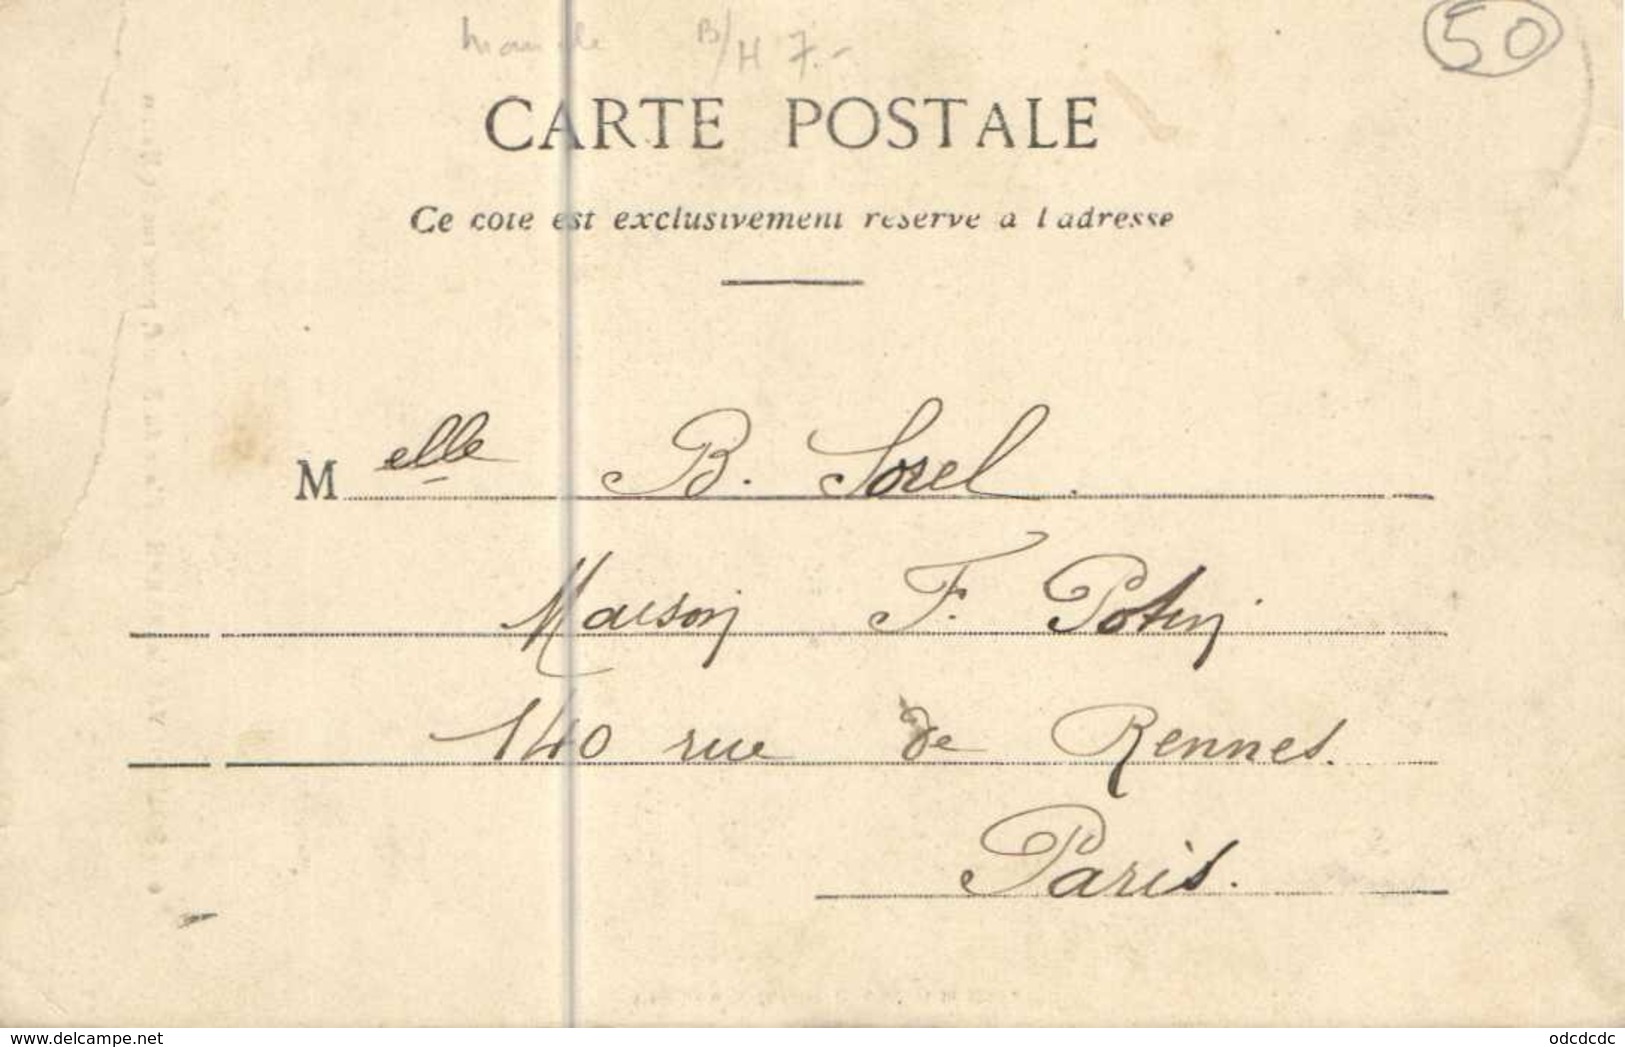 50
B/H 7.-
CARTE POSTALE
Ce côté est exclusivement réservé à l'adresse
Melle B. Sorel.
Maison F. Potin
140 rue de Rennes.
Paris.
www.delcampe.net
odcdcdc